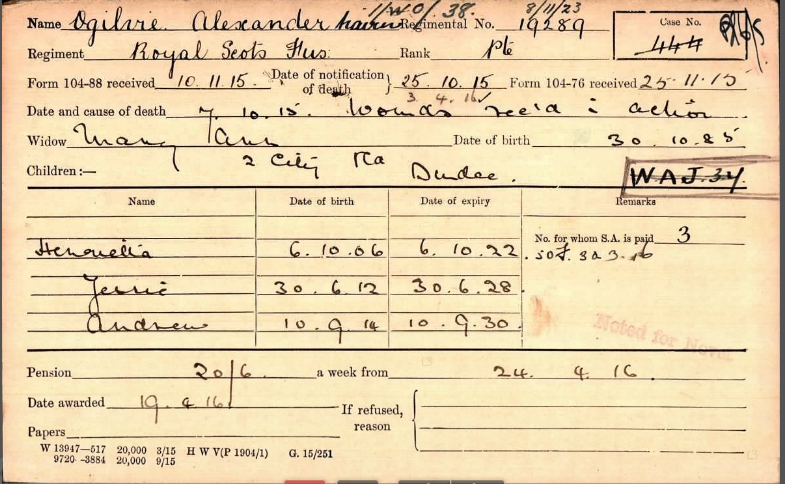 Name Ogilvie Alexander Regimental No. 19289
11/WO/38. 8/11/23
Case No. 444
Regiment Royal Scots Fus: Rank Pte
Form 104-88 received 10.11.15. Date of notification of death } 25.10.15 Form 104-76 received 25.11.15
3.4.16
Date and cause of death 7.10.15. Wounds rec'd i action
Widow Mary Ann Date of birth 30.10.85
Children:— 2 City Rd Dundee.
W.A.J.34
Name Date of birth Date of expiry Remarks
No. for whom S.A. is paid 3
Henrietta 6.10.06 6.10.22.
Jessie 30.6.12 30.6.28.
Andrew 10.9.14 10.9.30.
Noted for
Pension 20/6. a week from 24.4.16.
Date awarded 19.4.16. If refused, reason
Papers
W 13947—517 20,000 3/15 H W V(P 1904/1) G. 15/251
9720—3884 20,000 9/15